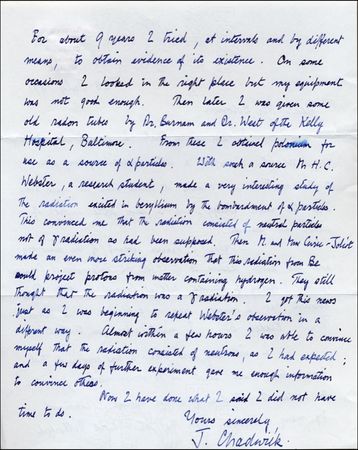 For about 9 years I tried, at intervals and by different
means, to obtain evidence of its existence. On some
occasions I looked in the right place but my equipment
was not good enough. Then later I was given some
old radon tubes by Dr. Burnam and Dr. West of the Kelly
Hospital, Baltimore. From these I obtained polonium for
use as a source of α particles. With such a source Mr H.C.
Webster, a research student, made a very interesting study of
the radiation excited in beryllium by the bombardment of α particles.
This convinced me that the radiation consisted of neutral particles
not of γ radiation as had been supposed. Then M. and Mme Curie-Joliot
made an even more striking observation that this radiation from Be
could project protons from matter containing hydrogen. They still
thought that the radiation was a γ radiation. I got this news
just as I was beginning to repeat Webster's observation in a
different way. Almost within a few hours I was able to convince
myself that the radiation consisted of neutrons, as I had expected;
and a few days of further experiment gave me enough information
to convince others.
Now I have done what I said I did not have
time to do.
Yours sincerely,
J. Chadwick.